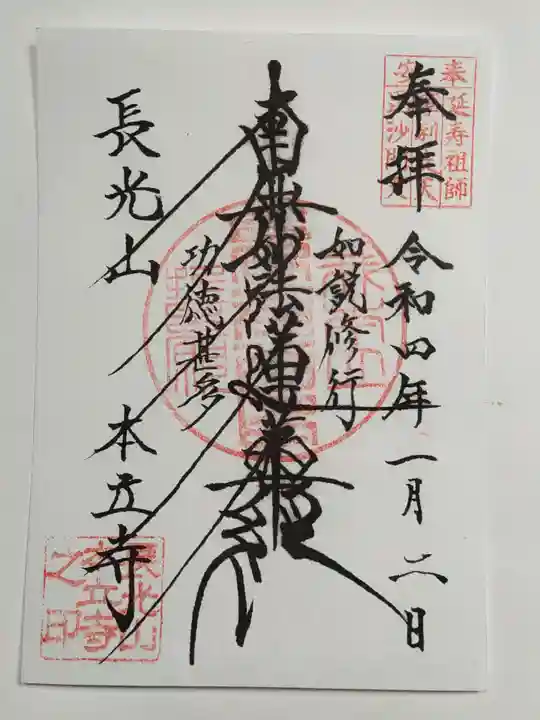 奉拝
令和四年一月二日
如説修行
南無妙法蓮華経
功徳甚多
長光山 本立寺
奉 延寿祖師
長光山
本立寺
之印